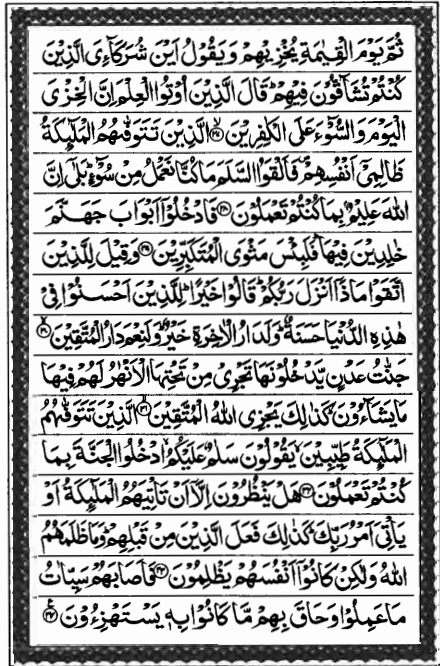 ثُمَّ يَوْمَ الْقِيٰمَةِ يُخْزِيْهِمْ وَيَقُوْلُ اَيْنَ شُرَكَآءِىَ الَّذِيْنَ
كُنْتُمْ تُشَآقُّوْنَ فِيْهِمْ ؕ قَالَ الَّذِيْنَ اُوْتُوا الْعِلْمَ اِنَّ الْخِزْىَ
الْيَوْمَ وَالسُّوْٓءَ عَلَى الْكٰفِرِيْنَ ۙ‏﴿۲۷﴾ الَّذِيْنَ تَتَوَفّٰٮهُمُ الْمَلٰٓٮِٕكَةُ
ظَالِمِىْٓ اَنْفُسِهِمْ ۪ فَاَلْقَوُا السَّلَمَ مَا كُنَّا نَعْمَلُ مِنْ سُوْٓءٍ ؕ بَلٰٓى اِنَّ
اللّٰهَ عَلِيْمٌۢ بِمَا كُنْتُمْ تَعْمَلُوْنَ ‏﴿۲۸﴾ فَادْخُلُوْۤا اَبْوَابَ جَهَنَّمَ
خٰلِدِيْنَ فِيْهَا ؕ فَلَبِئْسَ مَثْوَى الْمُتَكَبِّرِيْنَ ‏﴿۲۹﴾ وَقِيْلَ لِلَّذِيْنَ
اتَّقَوْا مَاذَاۤ اَنْزَلَ رَبُّكُمْ ؕ قَالُوْا خَيْرًا ؕ لِّلَّذِيْنَ اَحْسَنُوْا فِىْ
هٰذِهِ الدُّنْيَا حَسَنَةٌ ؕ وَلَدَارُ الْاٰخِرَةِ خَيْرٌ ؕ وَلَنِعْمَ دَارُ الْمُتَّقِيْنَ ۙ‏﴿۳۰﴾
جَنّٰتُ عَدْنٍ يَّدْخُلُوْنَهَا تَجْرِىْ مِنْ تَحْتِهَا الْاَنْهٰرُ لَهُمْ فِيْهَا
مَا يَشَآءُوْنَ ؕ كَذٰلِكَ يَجْزِى اللّٰهُ الْمُتَّقِيْنَ ۙ‏﴿۳۱﴾ الَّذِيْنَ تَتَوَفّٰٮهُمُ
الْمَلٰٓٮِٕكَةُ طَيِّبِيْنَ ۙ يَقُوْلُوْنَ سَلٰمٌ عَلَيْكُمُ ۙ ادْخُلُوا الْجَنَّةَ بِمَا
كُنْتُمْ تَعْمَلُوْنَ ‏﴿۳۲﴾ هَلْ يَنْظُرُوْنَ اِلَّاۤ اَنْ تَاْتِيَهُمُ الْمَلٰٓٮِٕكَةُ اَوْ
يَاْتِىَ اَمْرُ رَبِّكَ ؕ كَذٰلِكَ فَعَلَ الَّذِيْنَ مِنْ قَبْلِهِمْ ؕ وَمَا ظَلَمَهُمُ
اللّٰهُ وَلٰكِنْ كَانُوْۤا اَنْفُسَهُمْ يَظْلِمُوْنَ ‏﴿۳۳﴾ فَاَصَابَهُمْ سَيِّاٰتُ
مَا عَمِلُوْا وَحَاقَ بِهِمْ مَّا كَانُوْا بِهٖ يَسْتَهْزِءُوْنَ ‏﴿۳۴﴾ ع